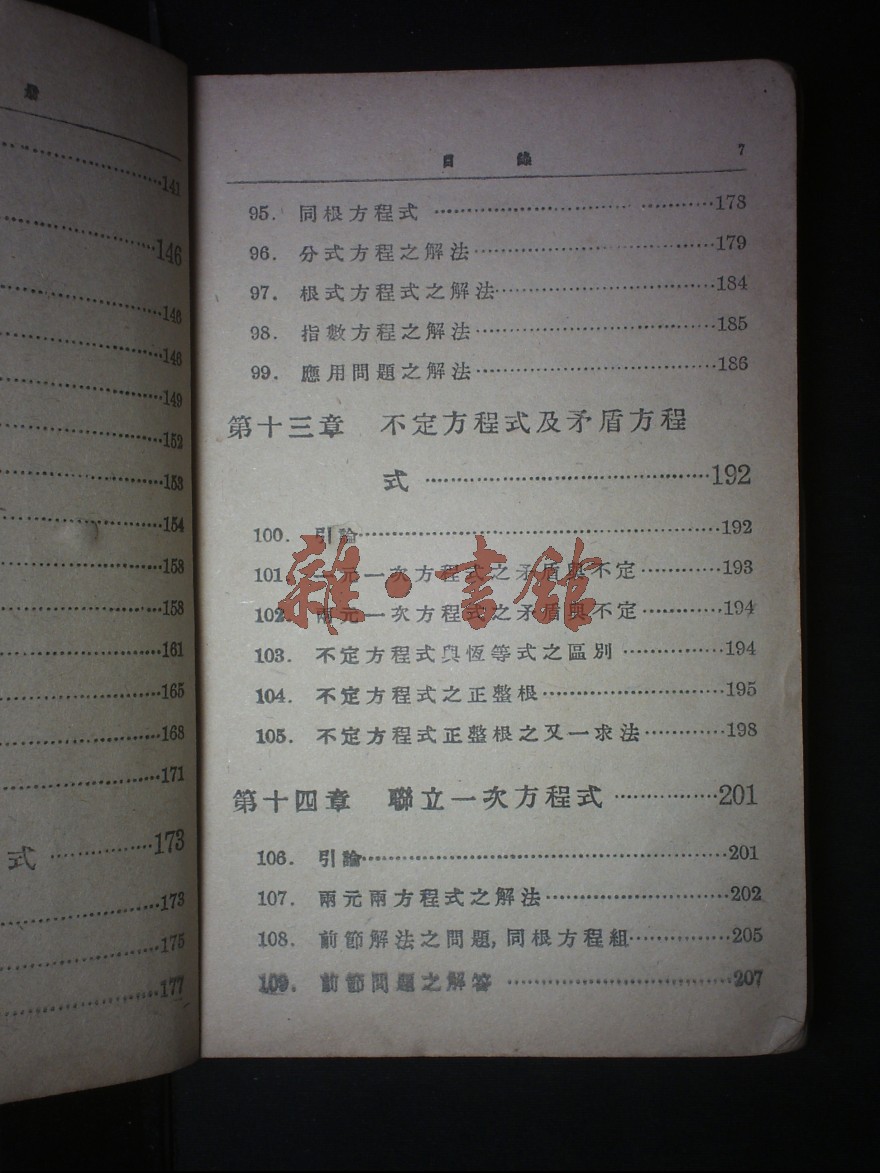 錄
141
146
146
146
149
152
153
154
158
158
161
165
168
171
式 173
173
175
177
目 錄 7
95. 同根方程式 178
96. 分式方程之解法 179
97. 根式方程式之解法 184
98. 指數方程之解法 185
99. 應用問題之解法 186
第十三章 不定方程式及矛盾方程
式 192
100. 引論 192
101. 一元一次方程式之矛盾與不定 193
102. 兩元一次方程式之矛盾與不定 194
103. 不定方程式與恆等式之區別 194
104. 不定方程式之正整根 195
105. 不定方程式正整根之又一求法 198
第十四章 聯立一次方程式 201
106. 引論 201
107. 兩元兩方程式之解法 202
108. 前節解法之問題,同根方程組 205
109. 前節問題之解答 207
雜·書館